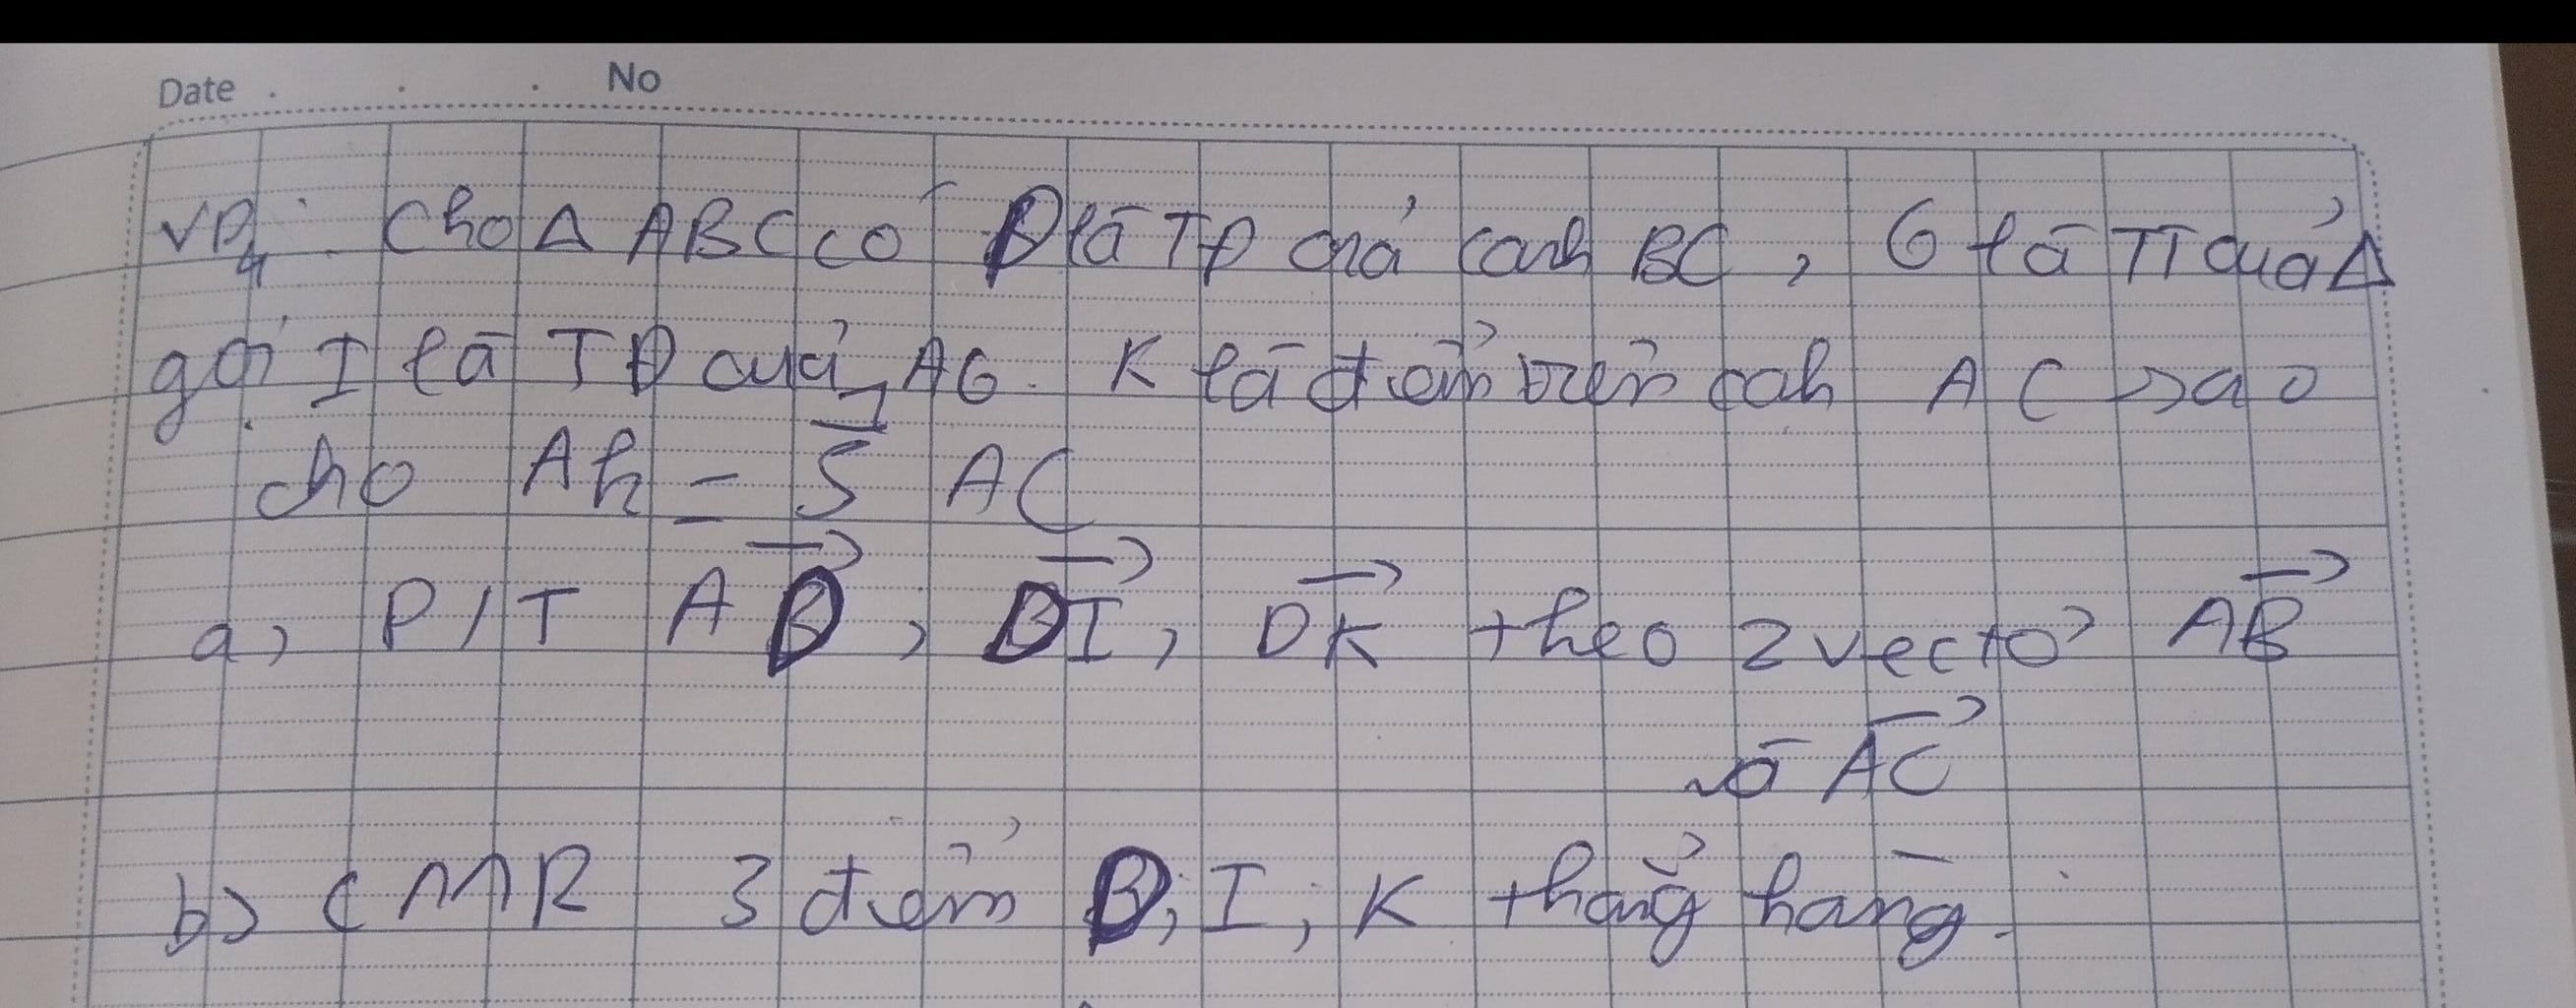 Date . . . No
VD4: Cho Δ ABC có D là TĐ của cạnh BC, G là TT của Δ
gọi I là TĐ của AG. K là điểm trên cạh AC sao
cho AK = 1/5 AC
a, P/T AD→, DI→, DK→ theo 2 vectơ AB→
và AC→
b) CMR 3 điểm D, I, K thẳng hàng.